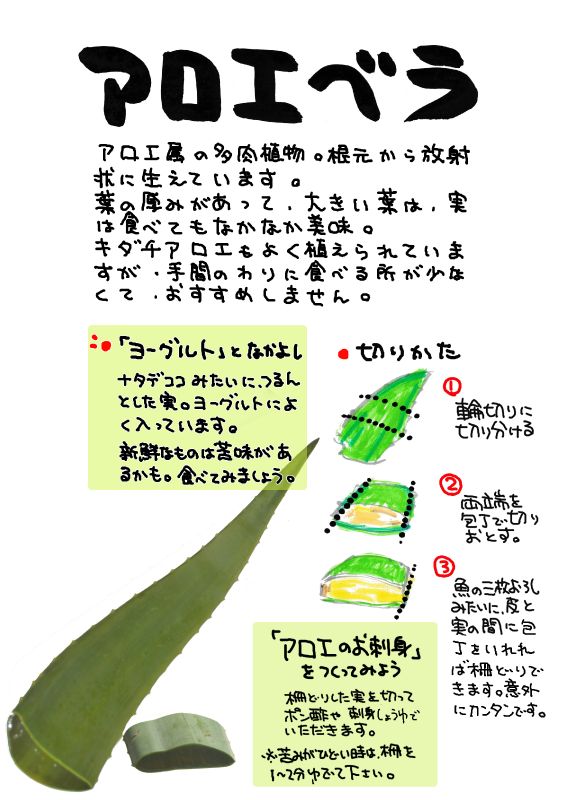 アロエベラ
アロエ属の多肉植物。根元から放射
状に生えています。
葉の厚みがあって、大きい葉は、実
は食べてもなかなか美味。
キダチアロエもよく植えられていま
すが、手間のわりに食べる所が少な
くて、おすすめしません。
「ヨーグルト」となかよし
ナタデココみたいに、つるん
とした実。ヨーグルトによ
く入っています。
新鮮なものは苦味があ
るかも。食べてみましょう。
切りかた
①
輪切りに
切り分ける
②
両端を
包丁で切り
おとす。
③
魚の三枚おろし
みたいに、皮と
実の間に包
丁をいれれ
ば柵どりで
きます。意外
にカンタンです。
「アロエのお刺身」
をつくってみよう
柵どりした実を切って
ポン酢や刺身しょうゆで
いただきます。
※苦みがひどい時は、柵を
1〜2分ゆでて下さい。